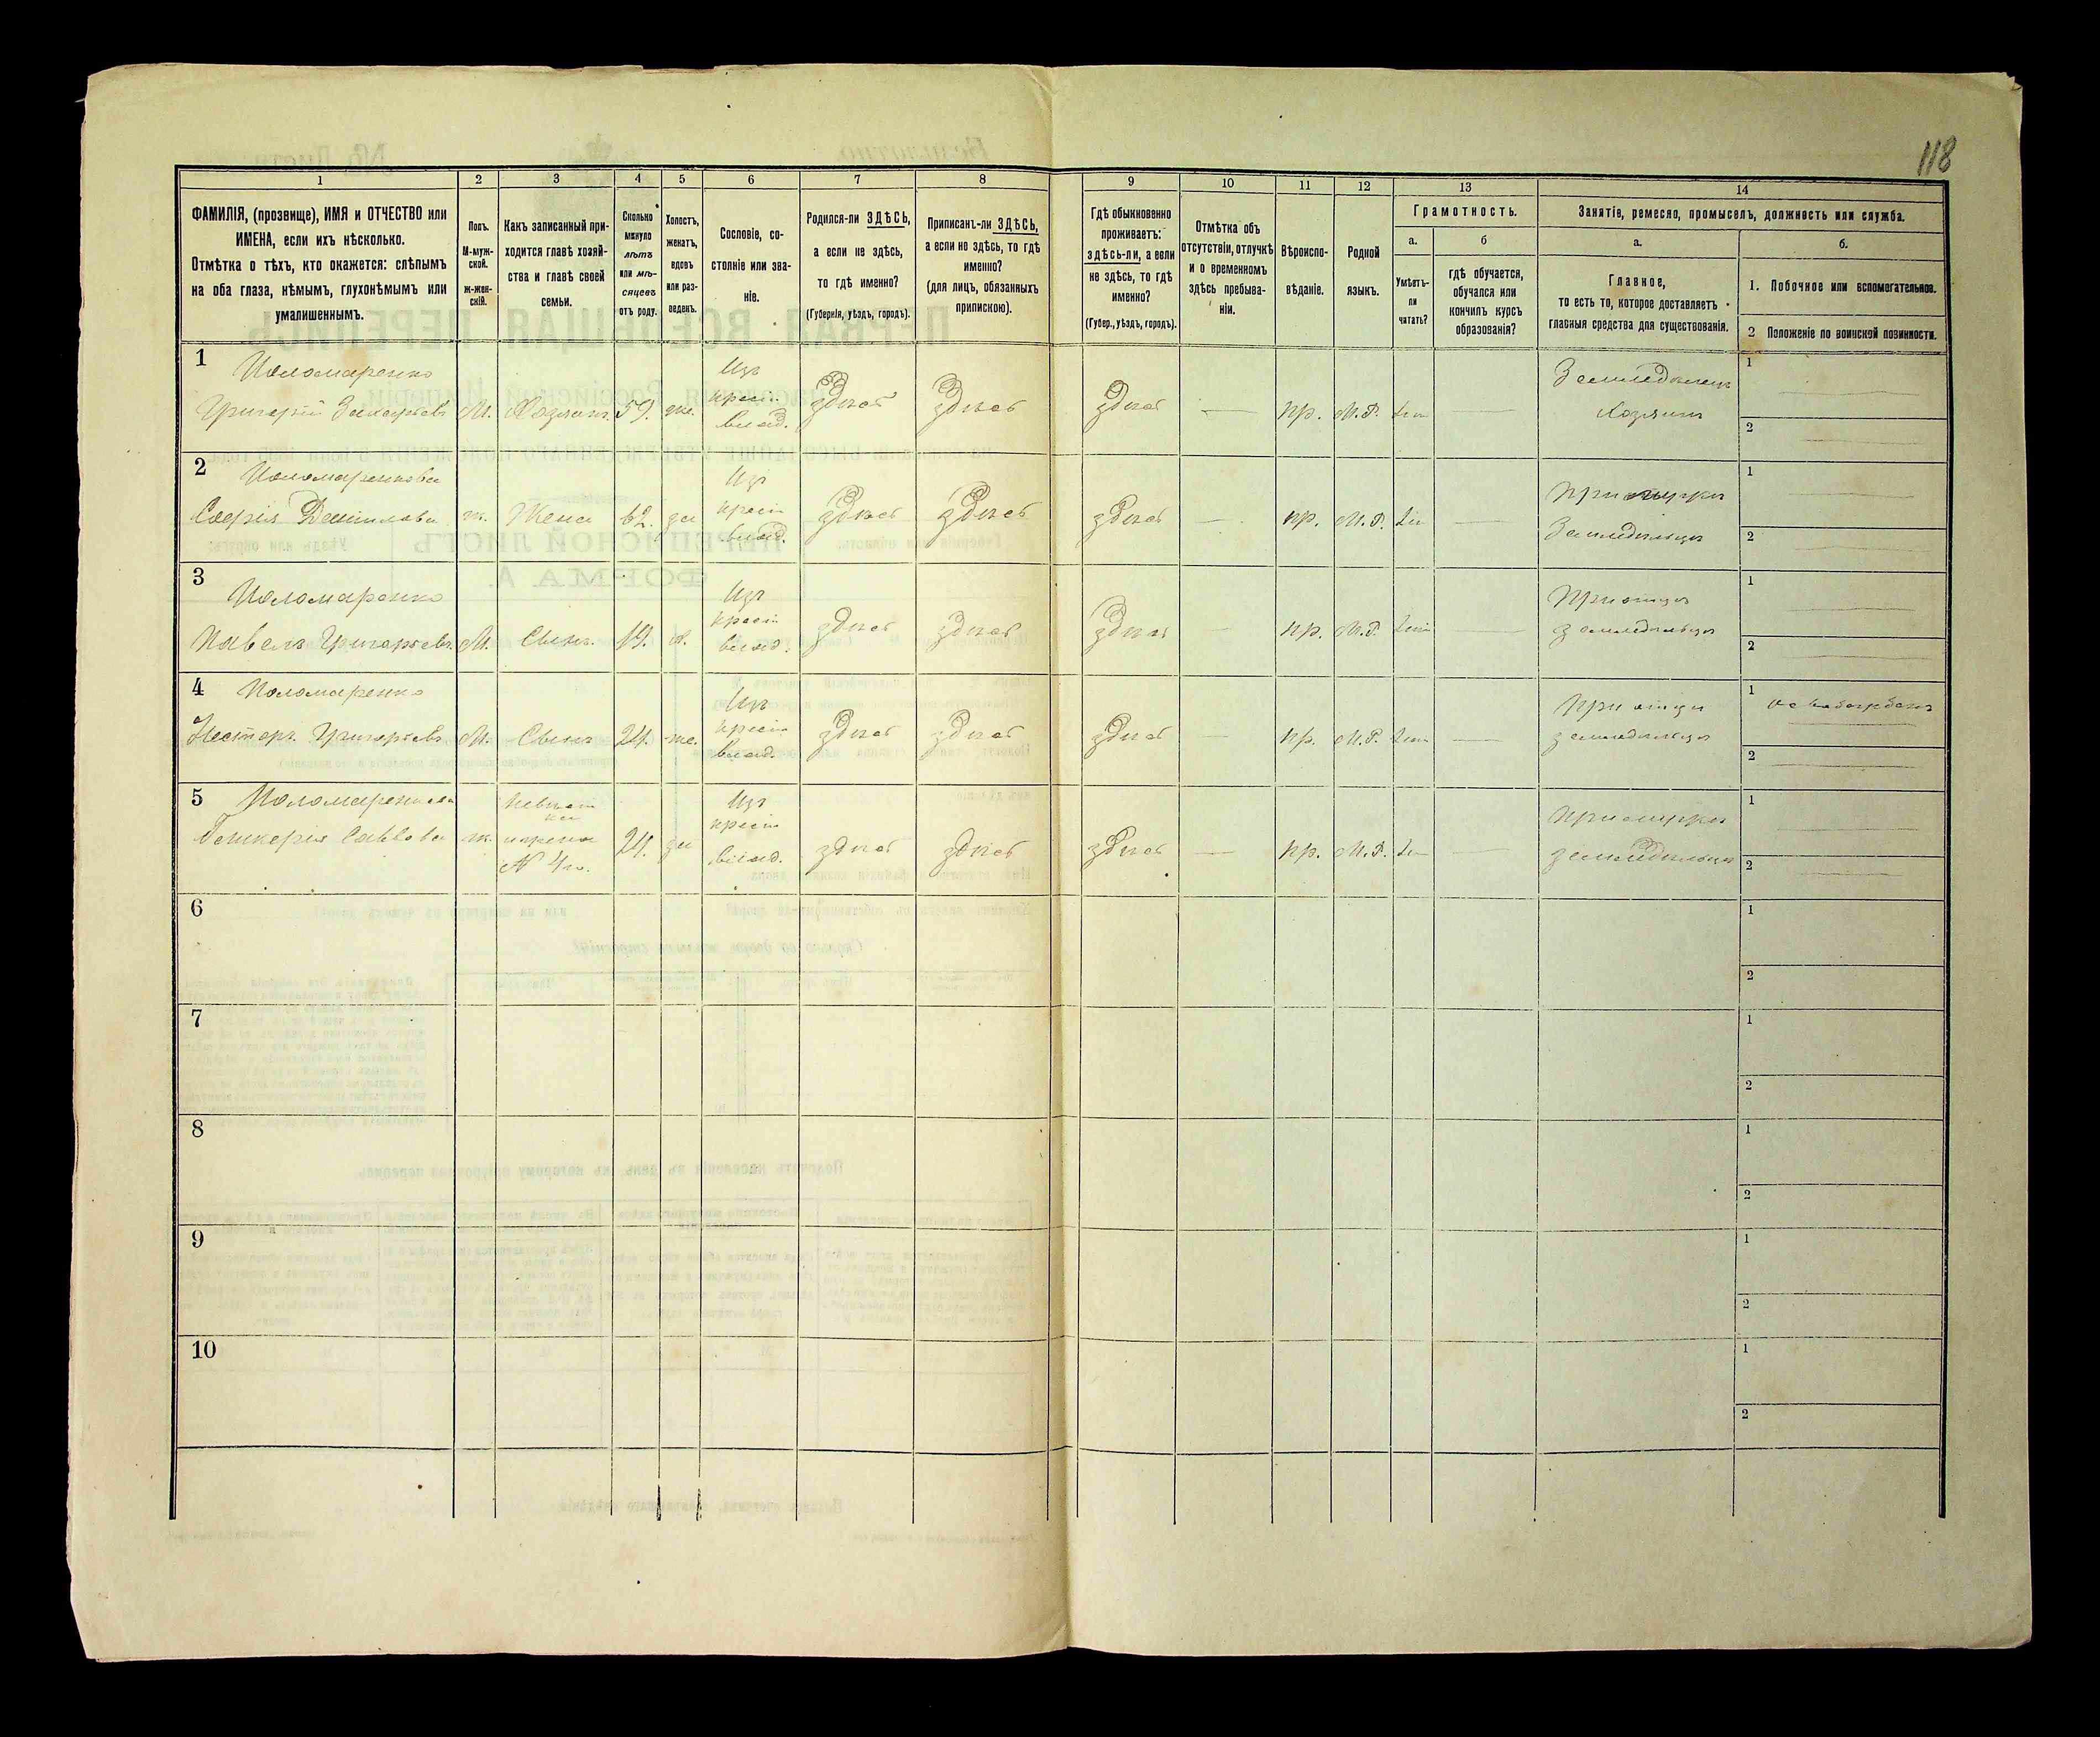 118
1 2 3 4 5 6 7 8 9 10 11 12 13 14
ФАМИЛІЯ, (прозвище), ИМЯ и ОТЧЕСТВО или
ИМЕНА, если ихъ нѣсколько.
Отмѣтка о тѣхъ, кто окажется: слѣпымъ
на оба глаза, нѣмымъ, глухонѣмымъ или
умалишеннымъ.
Полъ.
М-муж-
ской.
ж-жен-
скій.
Какъ записанный при-
ходится главѣ хозяй-
ства и главѣ своей
семьи.
Сколько
минуло
лѣтъ
или мѣ-
сяцевъ
отъ роду.
Холостъ,
женатъ,
вдовъ
или раз-
веденъ.
Сословіе, со-
стояніе или зва-
ніе.
Родился-ли ЗДѢСЬ,
а если не здѣсь,
то гдѣ именно?
(Губернія, уѣздъ, городъ).
Приписанъ-ли ЗДѢСЬ,
а если не здѣсь, то гдѣ
именно?
(для лицъ, обязанныхъ
припискою).
Гдѣ обыкновенно
проживаетъ:
здѣсь-ли, а если
не здѣсь, то гдѣ
именно?
(Губер., уѣздъ, городъ).
Отмѣтка объ
отсутствіи, отлучкѣ
и о временномъ
здѣсь пребыва-
ніи.
Вѣроиспо-
вѣданіе.
Родной
языкъ.
Грамотность.
а.
Умѣетъ-
ли
читать?
б
гдѣ обучается,
обучался или
кончилъ курсъ
образованія?
Занятіе, ремесло, промыселъ, должность или служба.
а.
Главное,
то есть то, которое доставляетъ
главныя средства для существованія.
б.
1. Побочное или вспомогательное.
2 Положеніе по воинской повинности.
1 Поломаренко Изъ Земледѣлецъ 1
Григорій Захарьевъ М. Хозяинъ 59. же. крест. здѣсь здѣсь здѣсь — пр. М.Р. Хозяинъ
влад. 2
2 Поломаренкова Изъ 1
Софія Данилова ж. Жена 62. за крест здѣсь здѣсь здѣсь — пр. М.Р. — При мужѣ
влад. Земледѣльцѣ 2
3 Поломаренко Изъ При отцѣ 1
Павелъ Григорьевъ М. Сынъ. 19. х. крест здѣсь здѣсь здѣсь — пр. М.Р. — земледѣльцѣ
влад. 2
4 Поломаренко Изъ При отцѣ 1
Несторъ Григорьевъ М. Сынъ 24. же. крест здѣсь здѣсь здѣсь — пр. М.Р. — земледѣльцѣ
влад. 2
5 Поломаренкова Невѣст Изъ При мужѣ 1
ка крест
Саввова ж. жена 24. за влад. здѣсь здѣсь здѣсь — пр. М.Р. — земледѣльцѣ 2
№ 4го.
6 1
2
7 1
2
8 1
2
9 1
2
10 1
2